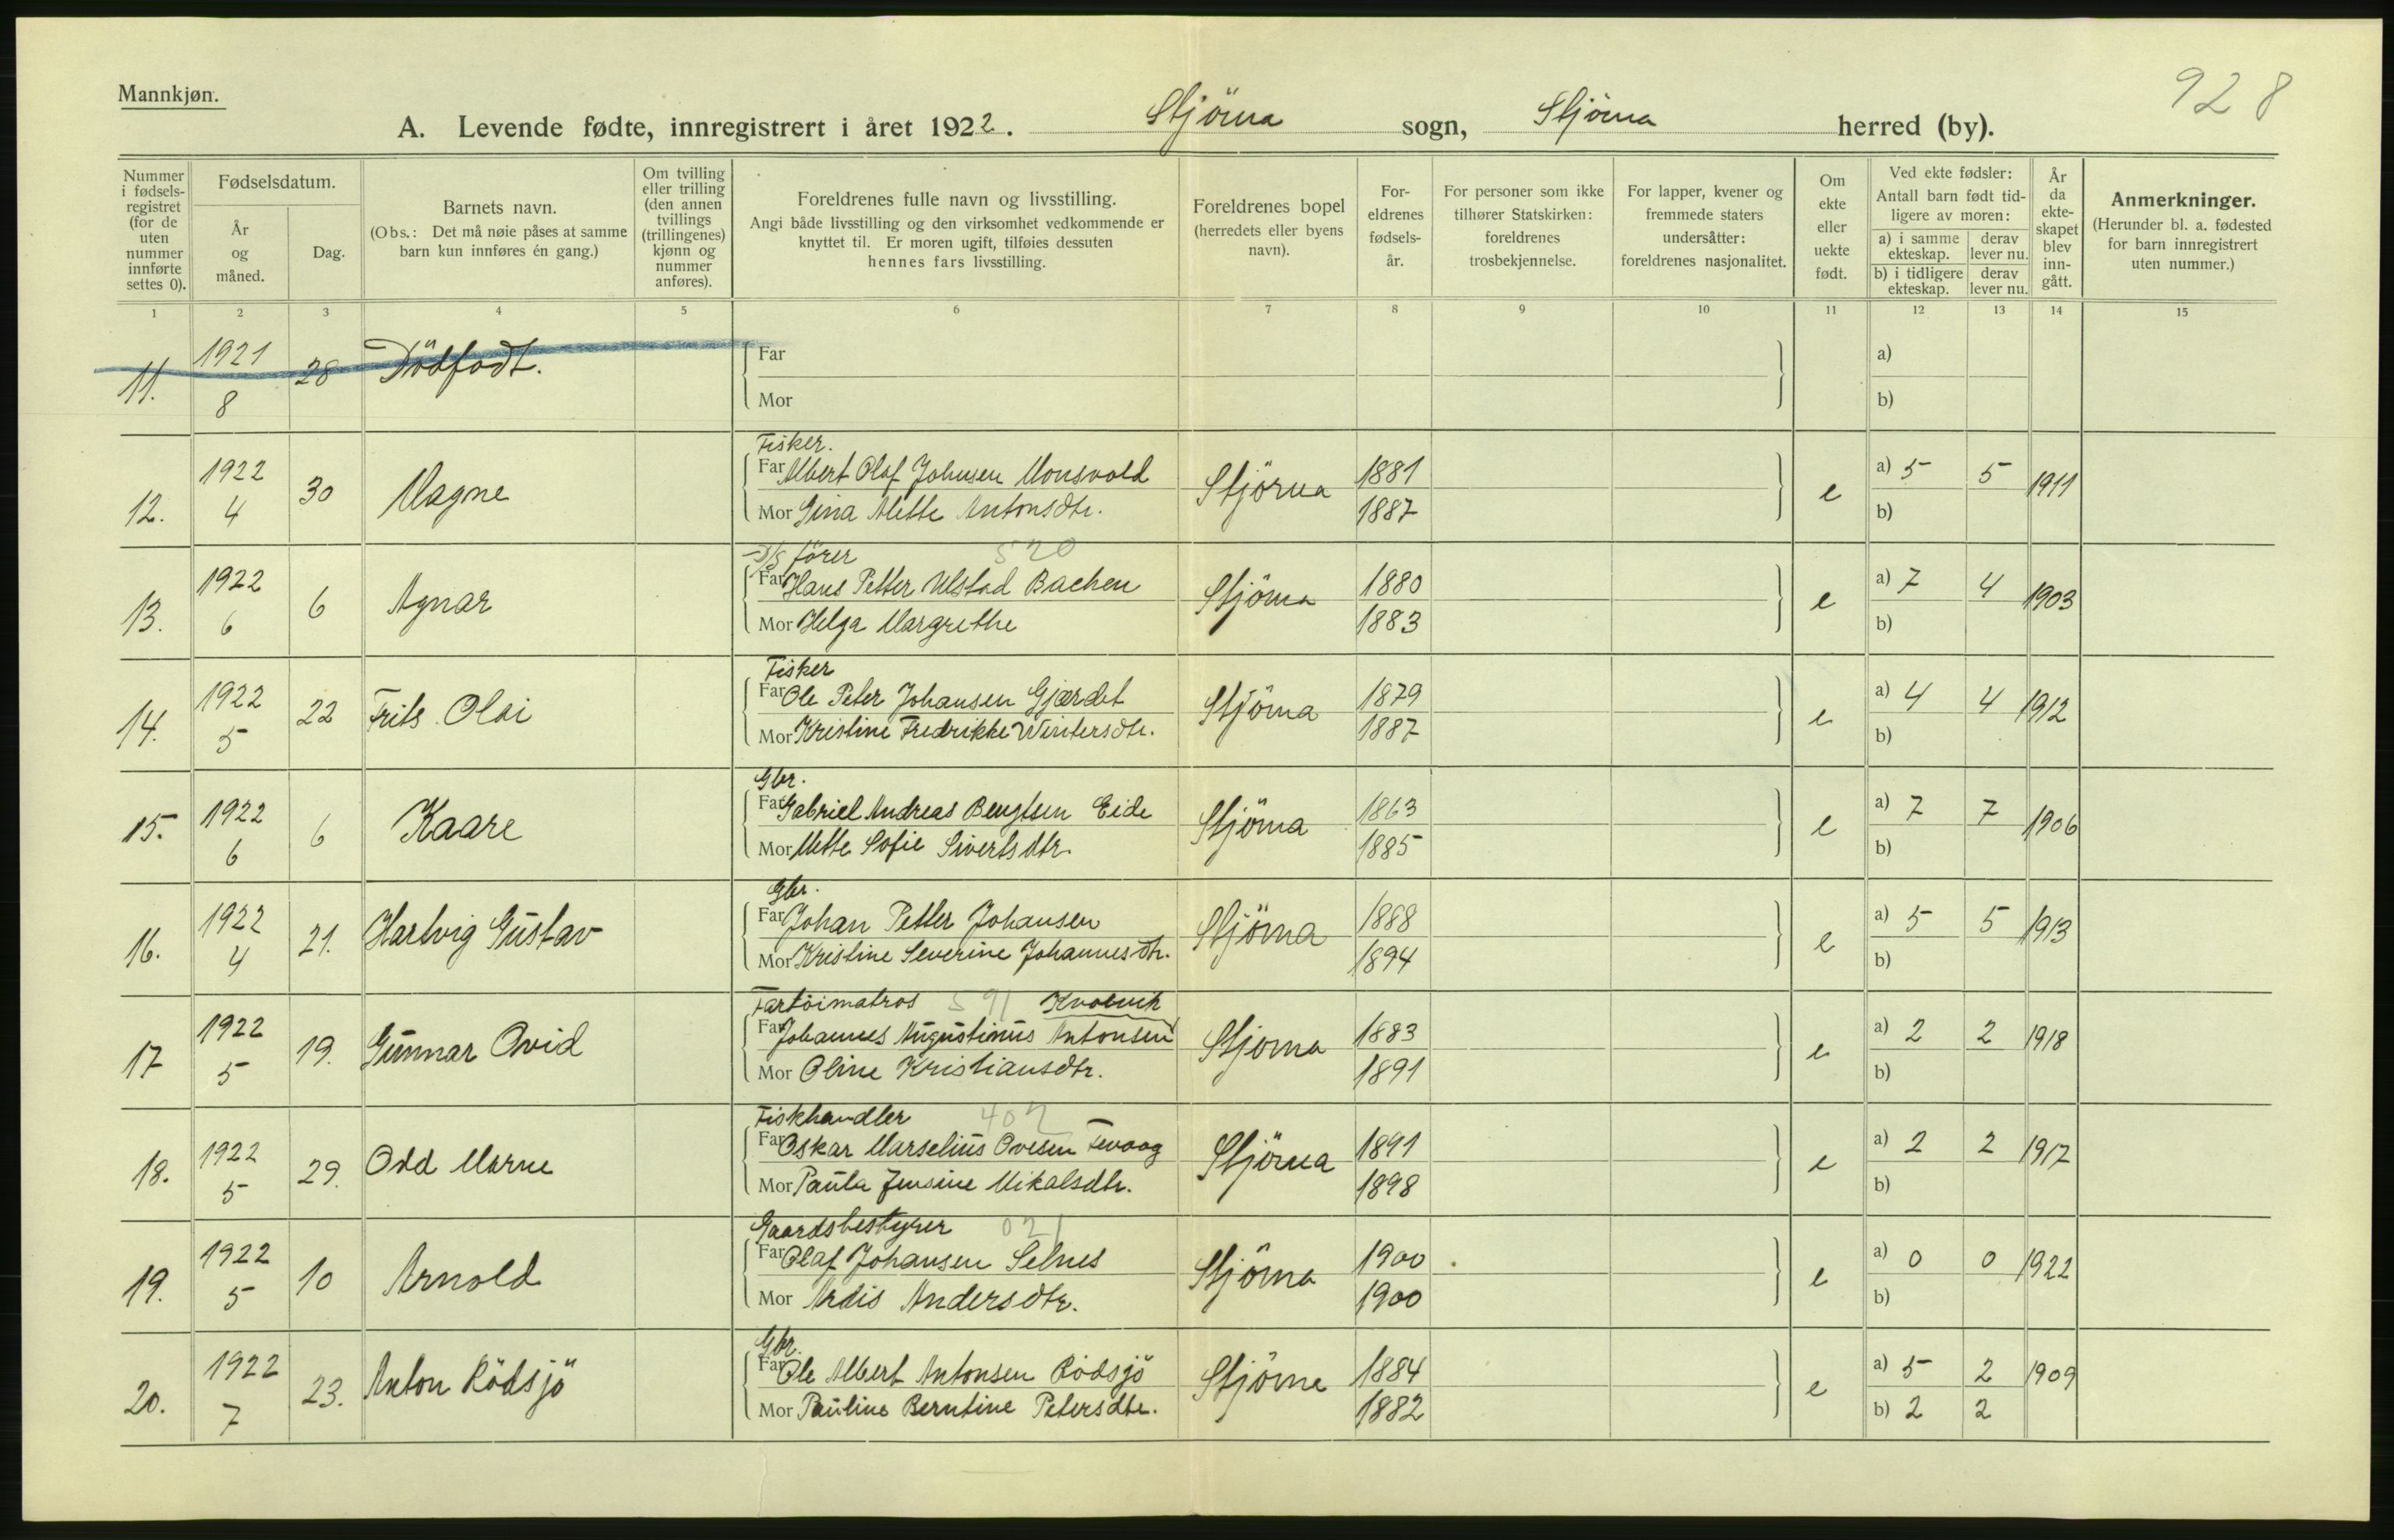 928
Mannkjøn.
A. Levende fødte, innregistrert i året 1922. Stjörna sogn, Stjörna herred (by).
Nummer i fødsels-registret (for de uten nummer innførte settes 0). Fødselsdatum. År og måned. Dag. Barnets navn. (Obs.: Det må nøie påses at samme barn kun innføres én gang.) Om tvilling eller trilling (den annen tvillings (trillingenes) kjønn og nummer anføres). Foreldrenes fulle navn og livsstilling. Angi både livsstilling og den virksomhet vedkommende er knyttet til. Er moren ugift, tilføies dessuten hennes fars livsstilling. Foreldrenes bopel (herredets eller byens navn). For-eldrenes fødsels-år. For personer som ikke tilhører Statskirken: foreldrenes trosbekjennelse. For lapper, kvener og fremmede staters undersåtter: foreldrenes nasjonalitet. Om ekte eller uekte født. Ved ekte fødsler: Antall barn født tid-ligere av moren: a) i samme ekteskap. derav lever nu. b) i tidligere ekteskap. derav lever nu. År da ekte-skapet blev inn-gått. Anmerkninger. (Herunder bl. a. fødested for barn innregistrert uten nummer.)
1 2 3 4 5 6 7 8 9 10 11 12 13 14 15
11. 1921 8 28 Dödfödt. Far a)
Mor b)
Fisker.
12. 1922 4 30 Magne Far Albert Olaf Johnsen Monsvold Stjörna 1881 e a) 5 5 1911
Mor Gina Mette Antonsdtr. 1887 b)
D/S förer 520
13. 1922 6 6 Agnar Far Hans Petter Ulstad Bachen Stjörna 1880 e a) 7 4 1903
Mor Helga Margrethe 1883 b)
Fisker
14. 1922 5 22 Frits Olai Far Ole Peter Johansen Gjærdet Stjörna 1879 e a) 4 4 1912
Mor Kristine Fredrikke Wintersdtr. 1887 b)
Gbr.
15. 1922 6 6 Kaare Far Gabriel Andreas Bengtsen Eide Stjörna 1863 e a) 7 7 1906
Mor Mette Sofie Sivertsdtr. 1885 b)
Gbr.
16. 1922 4 21. Hartvig Gustav Far Johan Petter Johansen Stjörna 1888 e a) 5 5 1913
Mor Kristine Severine Johannesdtr. 1894 b)
Fartöimatros 591
17 1922 5 19. Gunnar Ovid Far Johannes Augustinus Antonsen Stjörna 1883 e a) 2 2 1918
Mor Oline Kristiansdtr. 1891 b)
Fiskhandler 402
18. 1922 5 29. Odd Marne Far Oskar Marselius Ovesen Fevaag Stjörna 1891 e a) 2 2 1917
Mor Paula Jensine Mikalsdtr. 1898 b)
Gaardsbestyrer 021
19. 1922 5 10 Arnold Far Olaf Johansen Selnes Stjörna 1900 e a) 0 0 1922
Mor Ardis Andersdtr. 1900 b)
Gbr.
20. 1922 7 23. Anton Rödsjö Far Ole Albert Antonsen Rödsjö Stjörna 1884 e a) 5 2 1909
Mor Pauline Berntine Petersdtr. 1882 b) 2 2